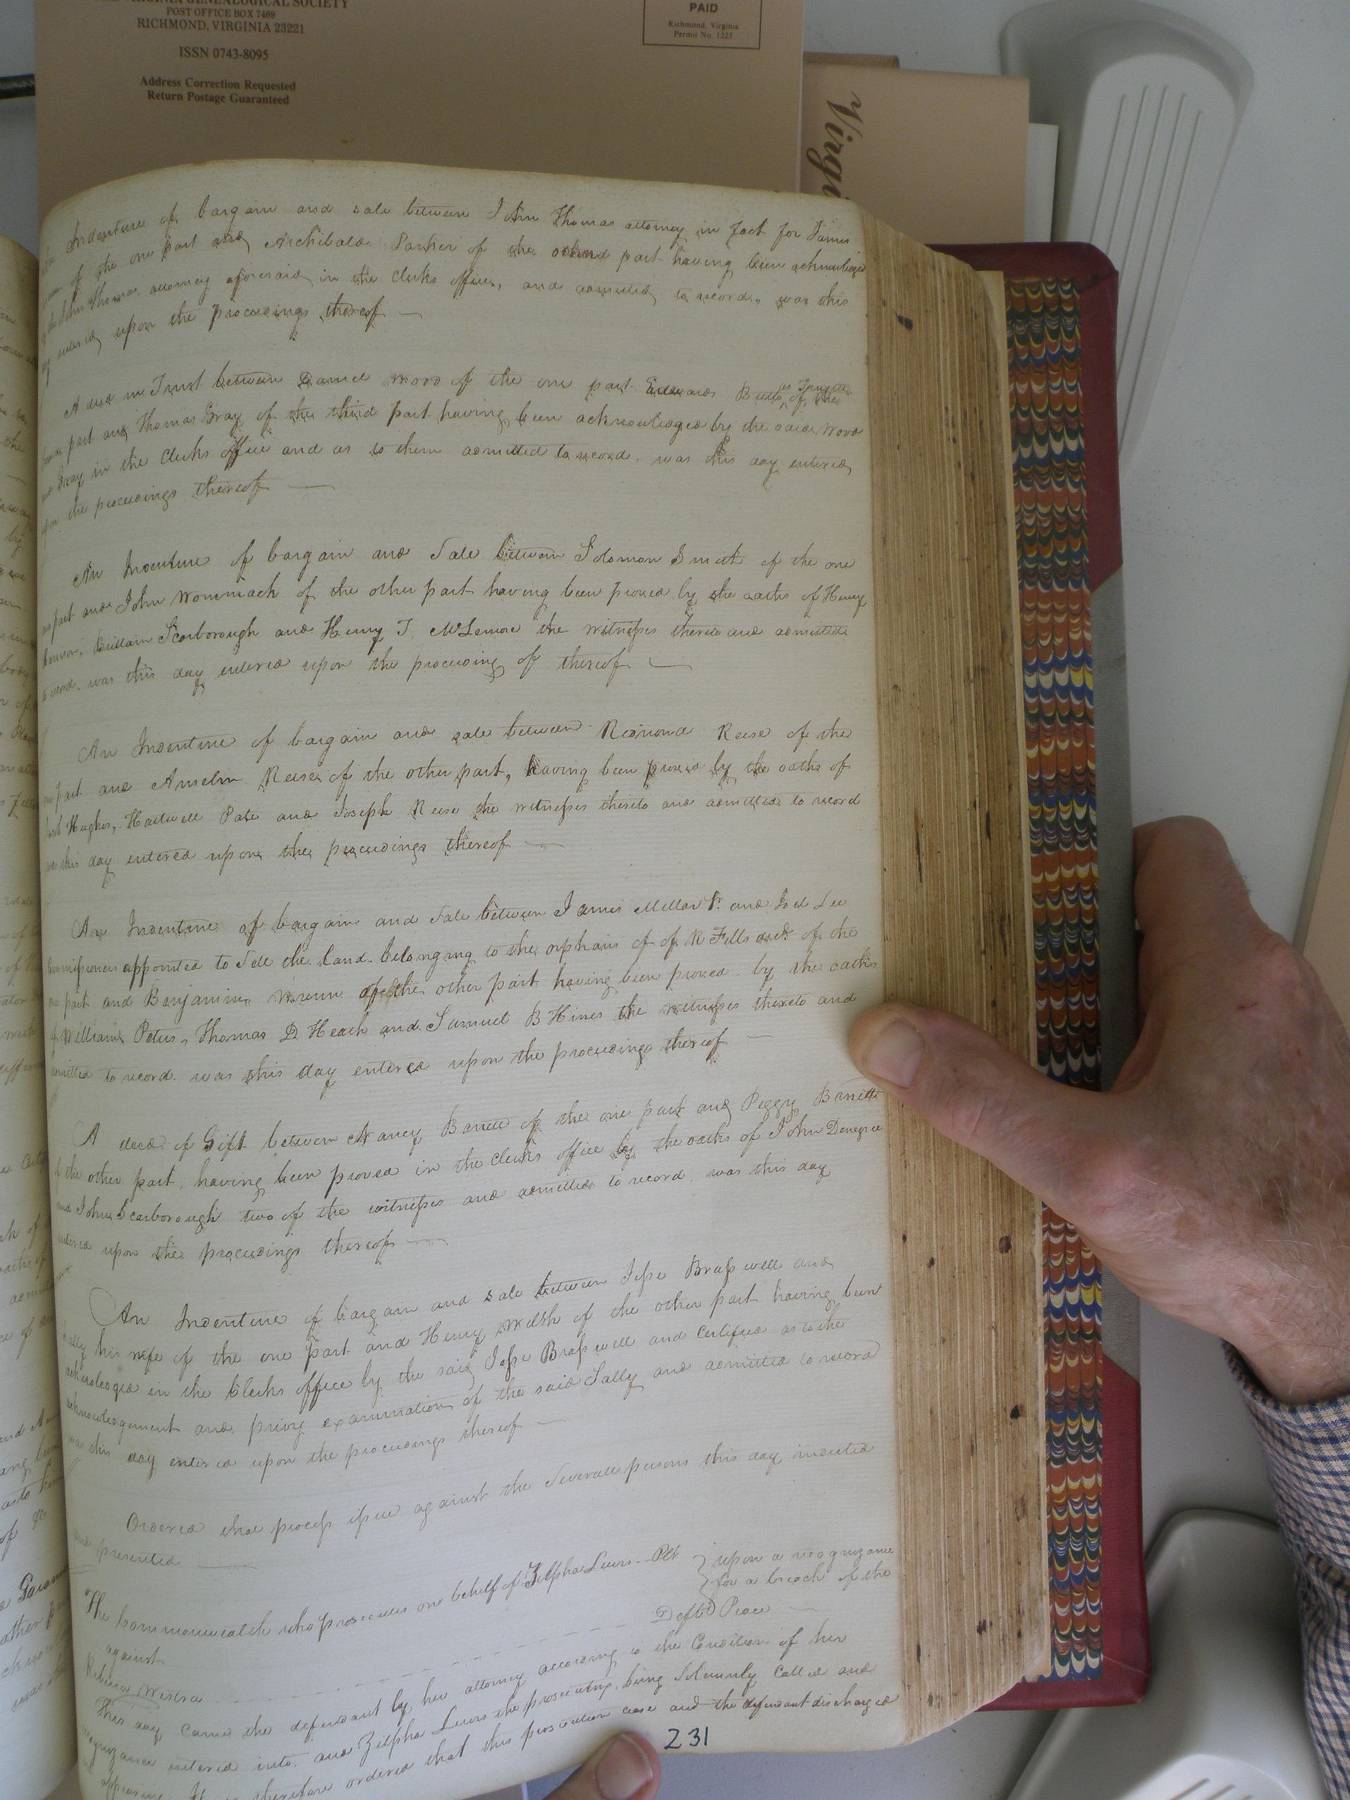 VIRGINIA GENEALOGICAL SOCIETY
POST OFFICE BOX 7469
RICHMOND, VIRGINIA 23221
ISSN 0743-8095
Address Correction Requested
Return Postage Guaranteed
PAID
Richmond, Virginia
Permit No. 1225
Virgi
Indenture of bargain and sale between John Thomas attorney in fact for James
of the one part and Archibald Parker of the other part having been acknowledged
John Thomas attorney aforesaid in the Clerks office, and admitted to record, was this
day entered upon the proceedings thereof
A deed in Trust between Daniel Wood of the one part Edwards Butts of the
part and Thomas Gray of the third part having been acknowledged by the said Wood
and Gray in the Clerks office and as to them admitted to record, was this day entered
upon the proceedings thereof
An Indenture of bargain and Sale between Solomon Smith of the one
part and John Wommack of the other part having been proved by the oaths of Henry
Brittain Scarborough and Henry T. McLemore the witnesses thereto and admitted
to record, was this day entered upon the proceeding of thereof
An Indenture of bargain and sale between Rimond Reese of the
one part and Anselm Reese of the other part, having been proved by the oaths of
Hughes, Hartwell Pate and Joseph Reese the witnesses thereto and admitted to record
was this day entered upon the proceedings thereof
An Indenture of bargain and Sale between James Millar Sr. and Joel Lee
Commissioners appointed to Sell the land belonging to the orphans of of R Fells decd. of the
one part and Benjamin Wrenn of the other part having been proved by the oaths
of William Peters, Thomas D Heath and Samuel B Hines the witnesses thereto and
admitted to record was this day entered upon the proceedings thereof
A deed of Gift between Nancy Barrett of the one part and Peggy Barrett
of the other part, having been proved in the clerks office by the oaths of John
and John Scarborough two of the witnesses and admitted to record, was this day
entered upon the proceedings thereof
An Indenture of bargain and sale between Jesse Brasswell and
Sally his wife of the one part and Henry Welsh of the other part having been
acknowledged in the Clerks office by the said Jesse Brasswell and Certified as to the
acknowledgement and privy examination of the said Sally and admitted to record
was this day entered upon the proceedings thereof
Ordered that process issue against the Several persons this day indicted
and presented
The Commonwealth who prosecutes on behalf of Zilpha Lewis Plt
upon a recognizance
for a breach of the
against
Deft Peace
This day came the defendant by her attorney according to the Condition of her
recognizance entered into and Zilpha Lewis the prosecutrix being Solemnly Called and
ordered that this prosecution case and the defendant discharged
231